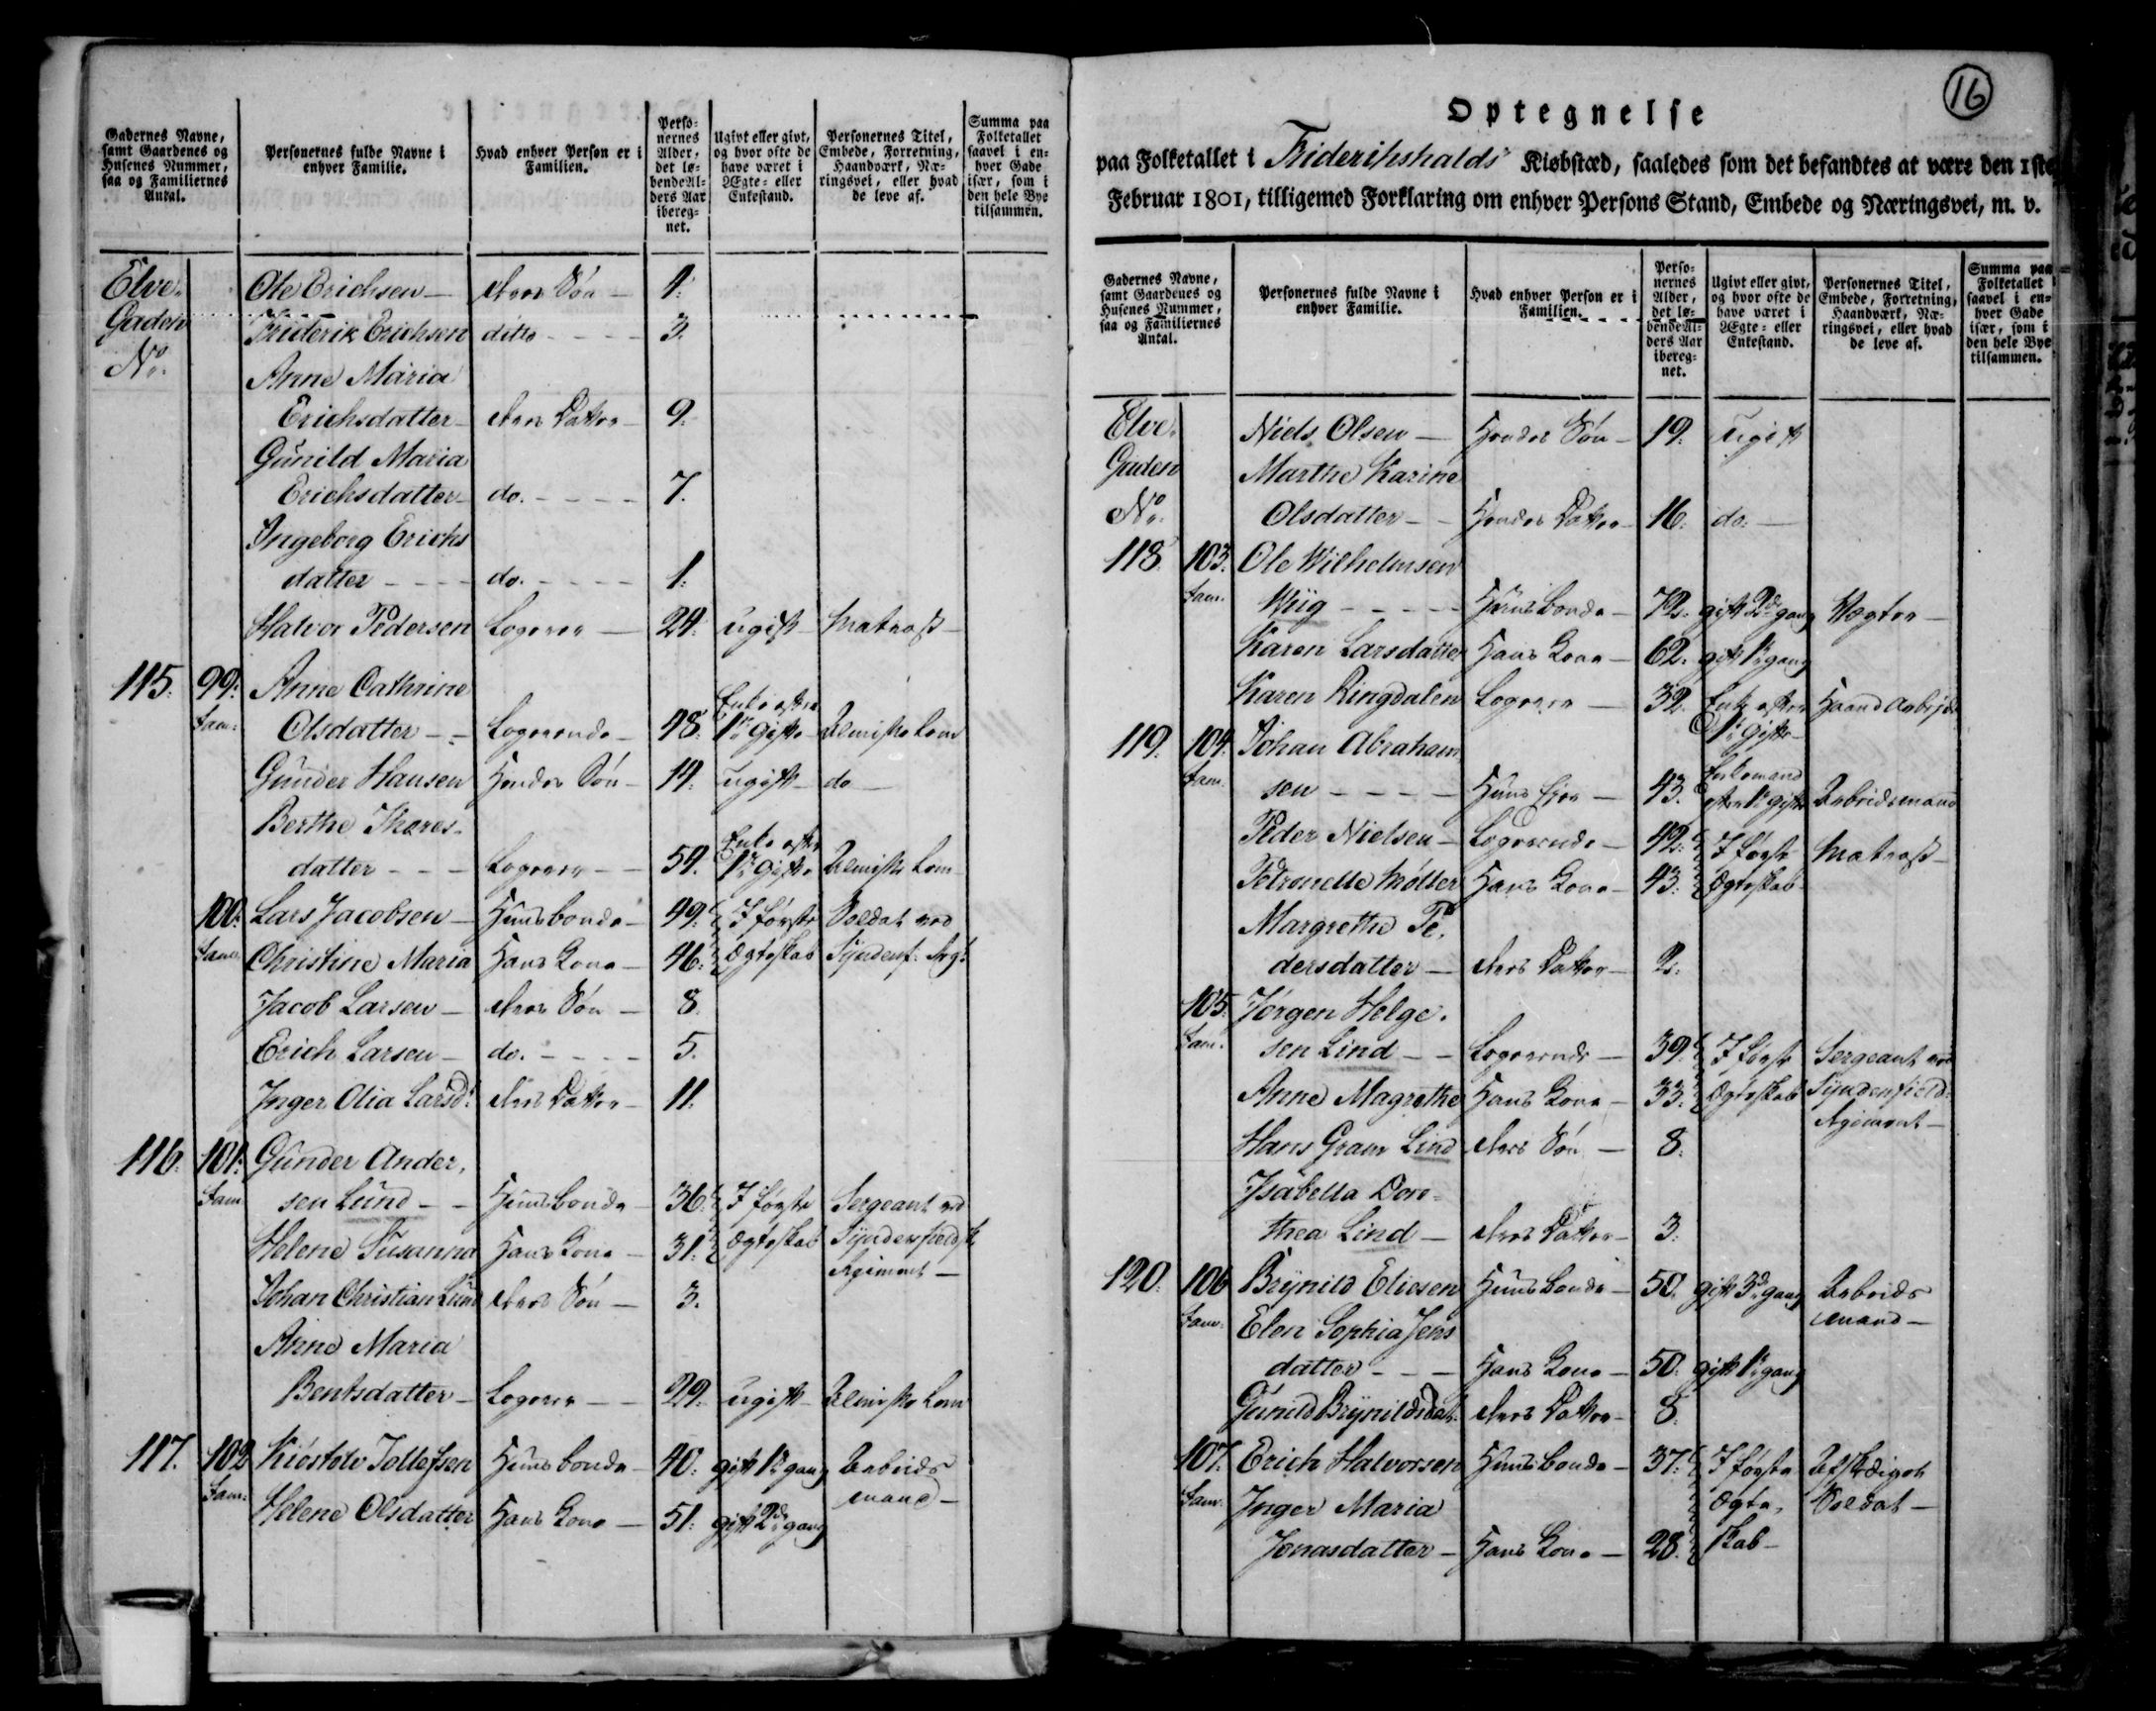 Gadernes Navne, samt Gaardenes og Husenes Nummer, saa og Familiernes Antal.
Personernes fulde Navne i enhver Familie.
Hvad enhver Person er i Familien.
Personernes Alder, det løbende Alders Aar iberegnet.
Ugivt eller givt, og hvor ofte de have været i Ægte- eller Enkestand.
Personernes Titel, Embede, Forretning, Haandværk, Næringsvei, eller hvad de leve af.
Summa paa Folketallet saavel i enhver Gade især, som i den hele Bye tilsammen.
Elve- Ole Erichsen — deres Søn — 1.
Gaden Friderik Erichsen ditto - - - - 3.
No. Anne Maria
Erichsdatter — deres Datter — 9.
Gunild Maria
Erichsdatter — do. - - - - 7.
Ingeborg Erichs
datter - - - - do. - - - - 1.
Halvor Pedersen Logerer — 24. ugift — Matros —
115. 99. Anne Cathrine
Fam. Olsdatter - - Logerende — 48. Enke efter 1te Gifte — Almisse Lem
Gunder Hansen Hendes Søn — 14. ugift — do —
Berthe Thores-
datter - - - Logerer - - 54. Enke efter 1te Gifte Almisse Lem
100. Lars Jacobsen — Huusbonde — 49. I første Soldat ved
Fam. Christine Maria Hans Kone — 46. Ægteskab Syndenf. Regt
Jacob Larsen — deres Søn — 8.
Erich Larsen — do. - - - - 5.
Inger Olia Larsd. deres Datter — 11.
116. 101. Gunder Ander-
Fam. sen Lund - - Huusbonde — 36. I første Sergeant ved
Helene Susanna Hans Kone — 31. Ægteskab Syndenfieldsk
Regiment —
Johan Christian Lund deres Søn — 3.
Anne Maria
Bentsdatter — Logerer - - 29. ugift — Almisse Lem
117. 102 Kiøstolv Tollefsen Huusbonde — 40. gift 1te gang Arbeids
Fam. mand —
Helene Olsdatter Hans Kone — 51. gift 2de gang
16
Optegnelse
paa Folketallet i Friderichshalds Kiøbstæd, saaledes som det befandtes at være den 1ste
Februar 1801, tilligemed Forklaring om enhver Persons Stand, Embede og Næringsvei, m. v.
Gadernes Navne, samt Gaardenes og Husenes Nummer, saa og Familiernes Antal.
Personernes fulde Navne i enhver Familie.
Hvad enhver Person er i Familien.
Personernes Alder, det løbende Alders Aar iberegnet.
Ugivt eller givt, og hvor ofte de have været i Ægte- eller Enkestand.
Personernes Titel, Embede, Forretning, Haandværk, Næringsvei, eller hvad de leve af.
Summa paa Folketallet saavel i enhver Gade især, som i den hele Bye tilsammen.
Elve- Niels Olsen — Hendes Søn — 19. ugift
Gaden Marthe Karine
No. Olsdatter - - Hendes Datter — 16. do. —
118. 103. Ole Wilhelmsen
Fam. Wiig - - - - Huusbonde — 72. gift 2de gang Vægter —
Karen Larsdatter Hans Kone — 62. gift 1te gang
Karen Ringdalen Logerer — 32. Enke efter 1te Gifte — Haand Arbejde
119. 104. Johan Abraham
Fam. sen - - - - Huus Ejer — 43. Enkemand efter 1te gifte Arbeidsmand
Peder Nielsen — Logerende — 42. I første Matros —
Petronelle Møller Hans Kone — 43. Ægteskab
Margrethe Pe-
dersdatter — deres Datter — 2.
105. Jørgen Helge-
Fam. sen Lind - - Logerende — 39. I første Sergeant ved
Anne Magrethe Hans Kone — 33. Ægteskab Syndenfield.
Regiment —
Hans Gram Lind deres Søn — 8.
Isabella Doro-
thea Lind — deres Datter — 3.
120. 106 Brynild Eliesen Huusbonde — 50. gift 3de gang Arbeids
Fam. mand —
Elen Sophia Jens
datter - - - Hans Kone — 50. gift 1te gang
Gunild Brynildsdat. deres Datter — 8.
107. Erich Halvorsen Huusbonde — 37. I første Afskediget
Fam. Inger Maria Ægte- Soldat —
Jonasdatter — Hans Kone — 28. skab —